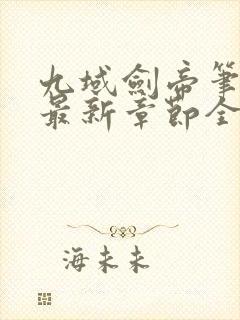 九域劍帝筆
最新章節全
海未未